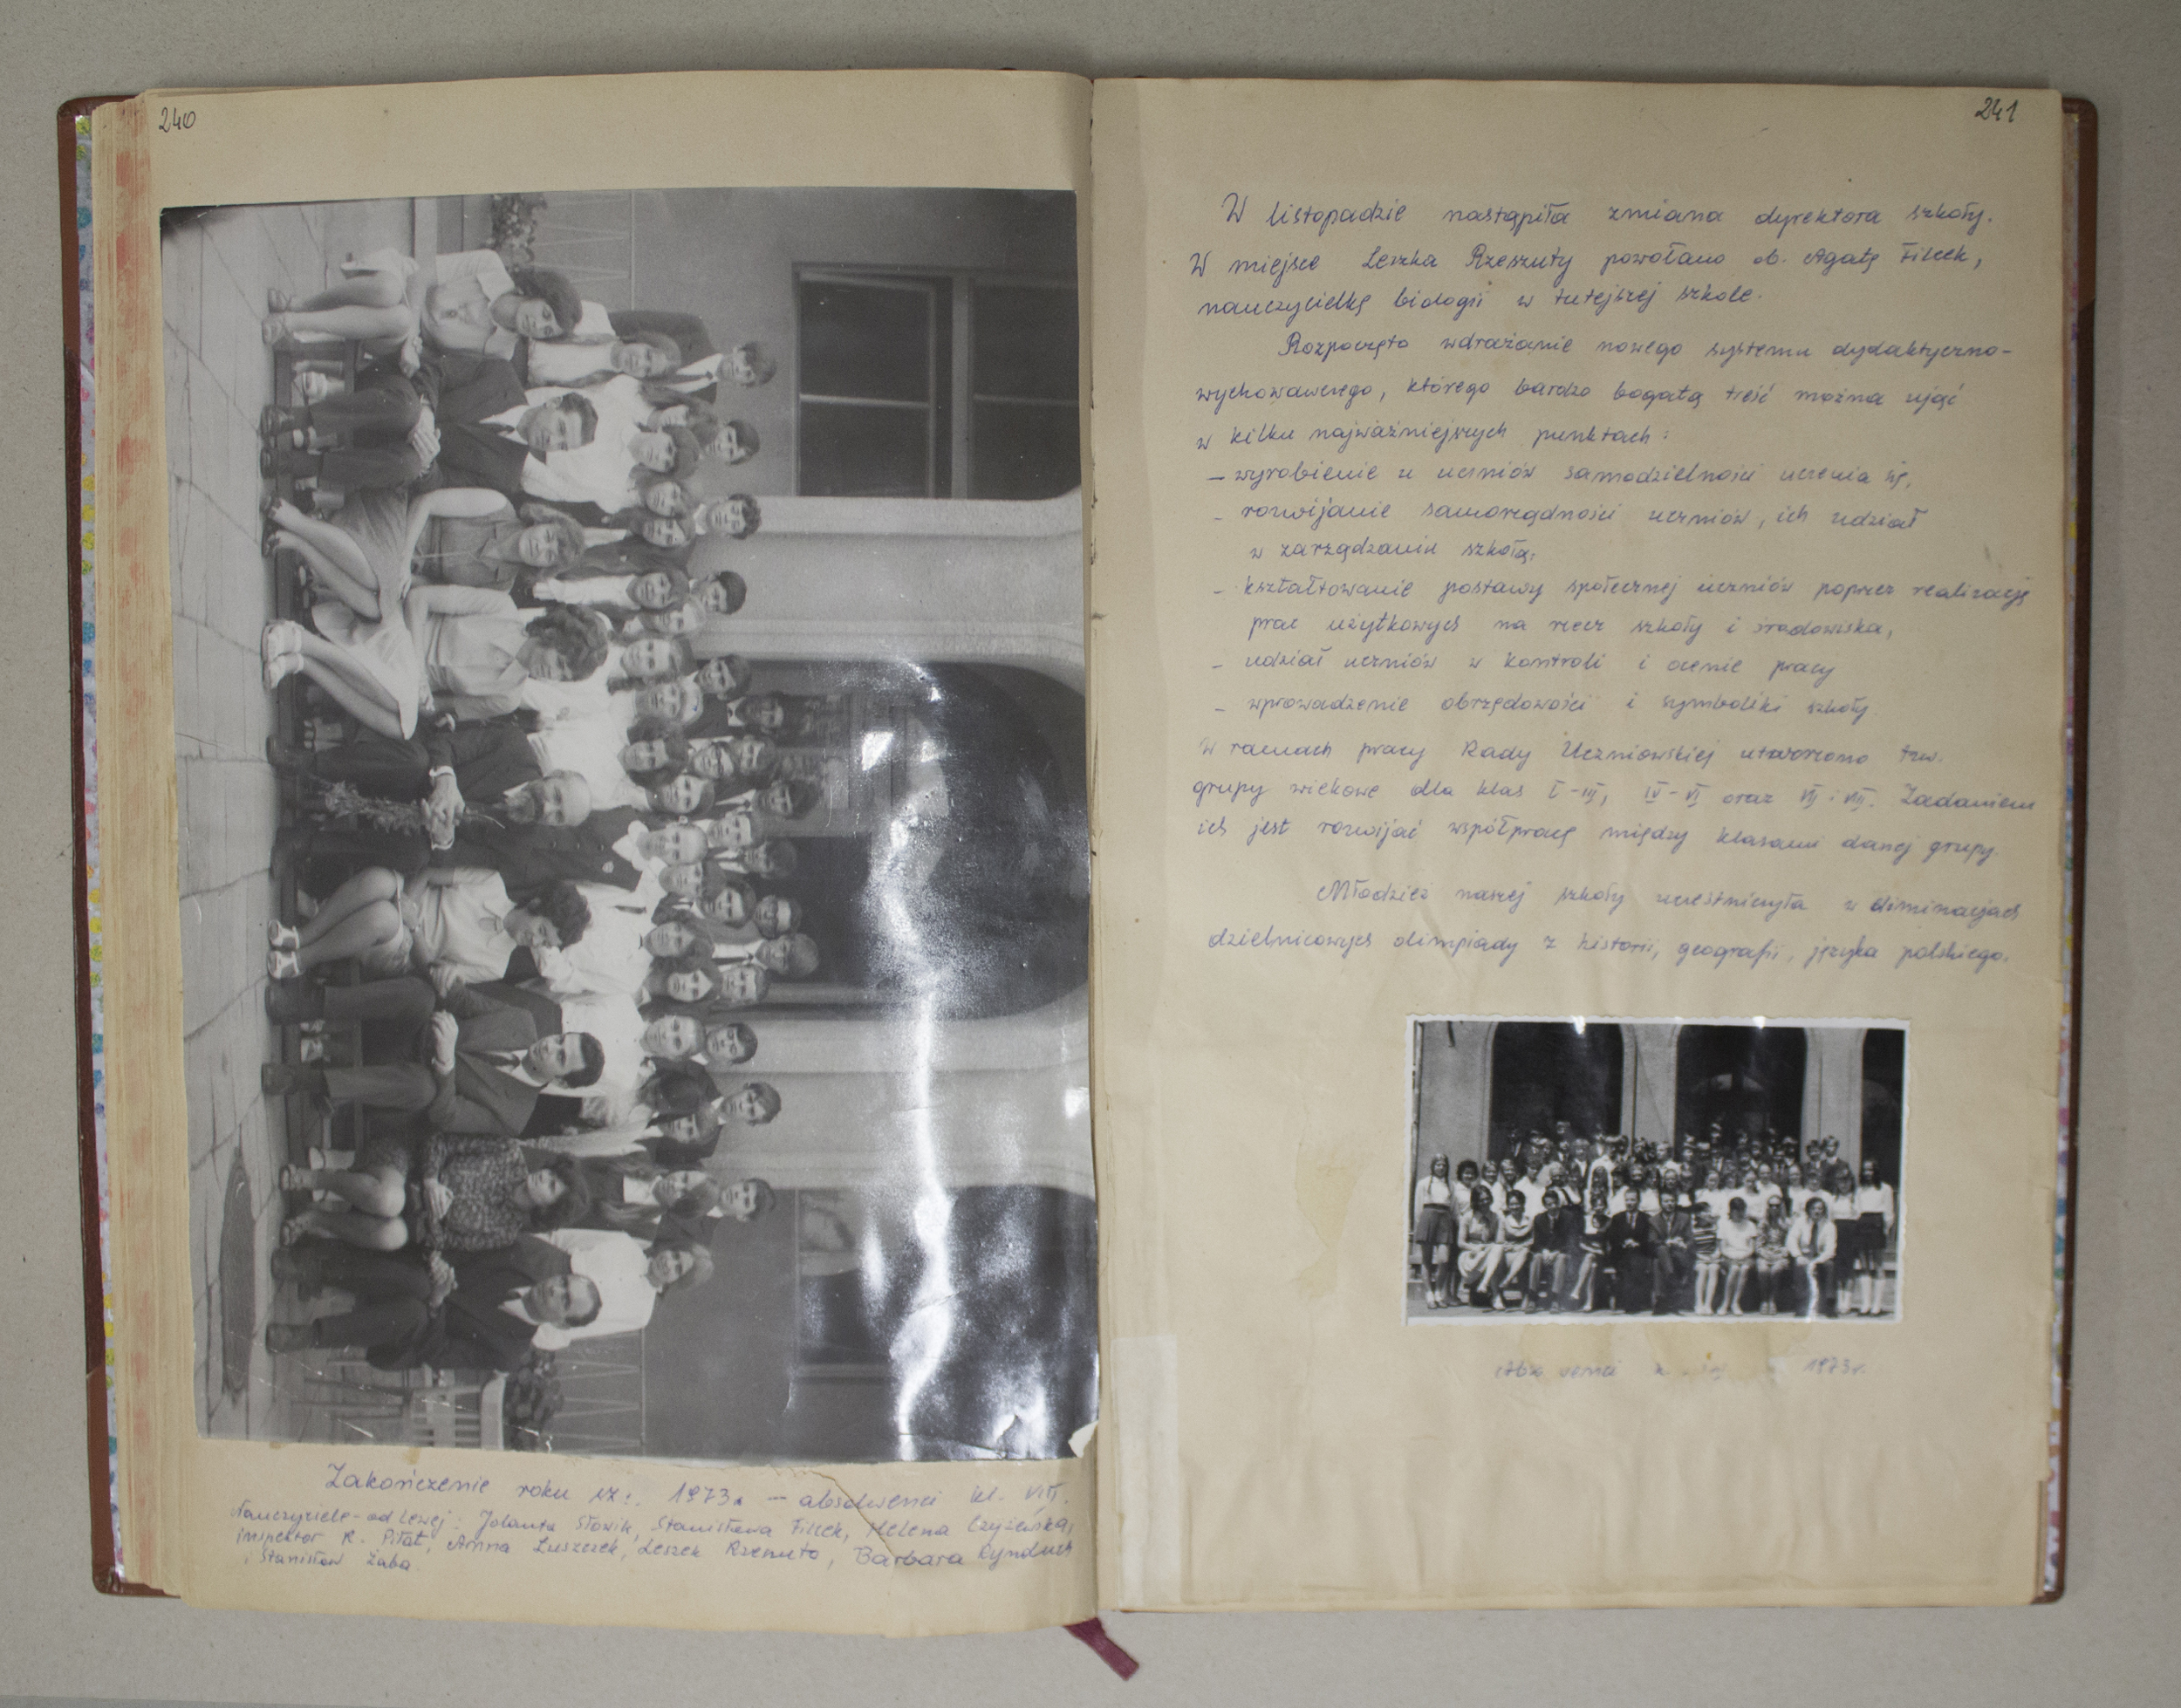 240
Zakończenie roku sz:. 1973r — absolwenci kl. VIII.
Nauczyciele - od lewej: Jolanta Słowik, Stanisława Filek, Helena Czyżewska,
inspektor R. Piłat, Anna Łuszczek, Leszek Rzeszuto, Barbara Rynduch
i Stanisław Żaba
241
W listopadzie nastąpiła zmiana dyrektora szkoły.
W miejsce Leszka Rzeszuty powołano ob. Agatę Filek,
nauczycielkę biologii w tutejszej szkole.
Rozpoczęto wdrażanie nowego systemu dydaktyczno-
wychowawczego, którego bardzo bogatą treść można ująć
w kilku najważniejszych punktach:
- wyrobienie u uczniów samodzielności uczenia się,
- rozwijanie samorządności uczniów, ich udział
w zarządzaniu szkołą,
- kształtowanie postawy społecznej uczniów poprzez realizację
prac użytkowych na rzecz szkoły i środowiska,
- udział uczniów w kontroli i ocenie pracy
- wprowadzenie obrzędowości i symboliki szkoły.
W ramach pracy Rady Uczniowskiej utworzono tzw.
grupy wiekowe dla klas I-III, IV-VI oraz VII i VIII. Zadaniem
ich jest rozwijać współpracę między klasami danej grupy.
Młodzież naszej szkoły uczestniczyła w eliminacjach
dzielnicowych olimpiady z historii, geografii, języka polskiego.
1973r.